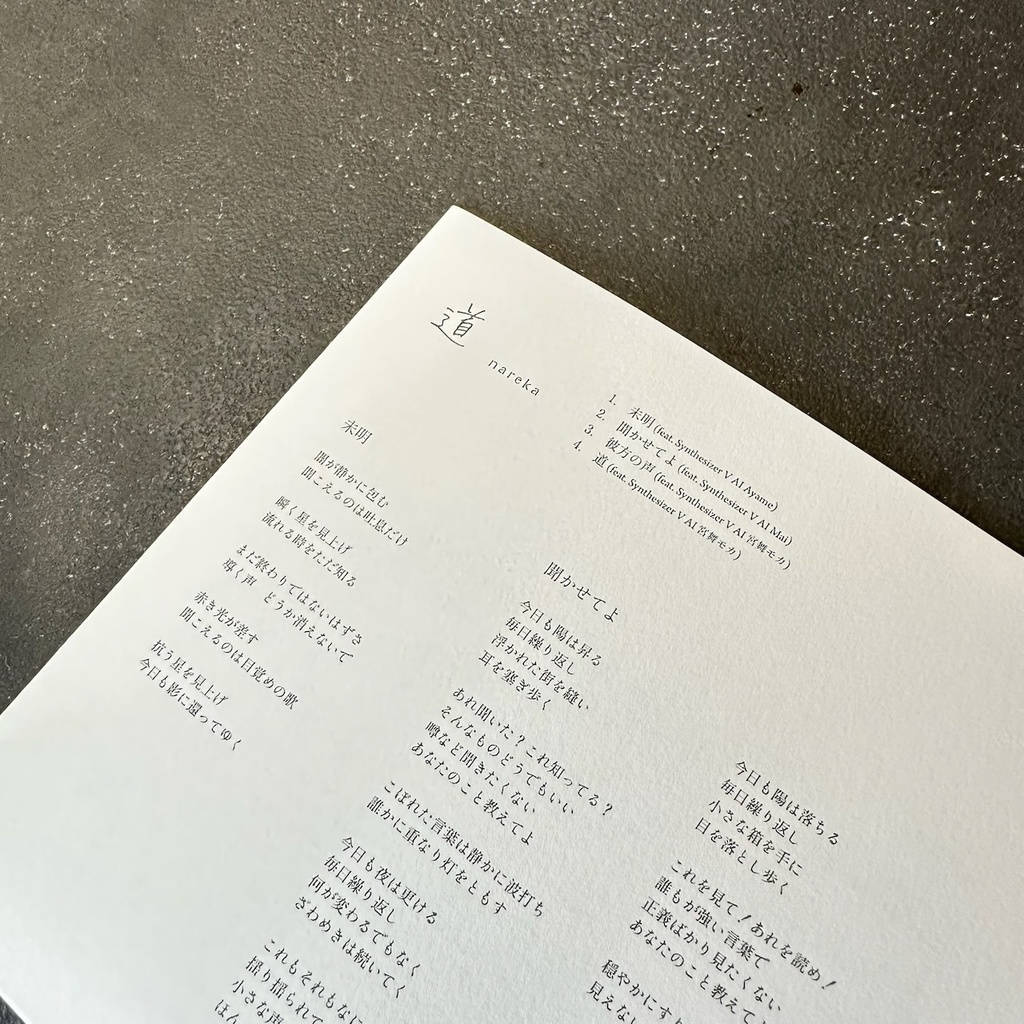 道
nareka
1. 未明 (feat. Synthesizer V AI Ayame)
2. 聞かせてよ (feat. Synthesizer V AI Mai)
3. 彼方の声 (feat. Synthesizer V AI 宮舞モカ)
4. 道 (feat. Synthesizer V AI 宮舞モカ)
未明
闇が静かに包む
聞こえるのは吐息だけ
瞬く星を見上げ
流れる時をただ知る
まだ終わりではないはずさ
導く声 どうか消えないで
赤き光が差す
聞こえるのは目覚めの歌
抗う星を見上げ
今日も影に還ってゆく
聞かせてよ
今日も陽は昇る
毎日繰り返し
浮かれた街を縫い
耳を塞ぎ歩く
あれ聞いた？これ知ってる？
そんなものどうでもいい
噂など聞きたくない
あなたのこと教えてよ
こぼれた言葉は静かに波打ち
誰かに重なり灯をともす
今日も夜は更ける
毎日繰り返し
何が変わるでもなく
ざわめきは続いてく
これもそれもなに
揺り揺られて
小さな声
ほん
今日も陽は落ちる
毎日繰り返し
小さな箱を手に
目を落とし歩く
これを見て！あれを読め！
誰もが強い言葉で
正義ばかり見たくない
あなたのこと教えて
穏やかにす
見えない